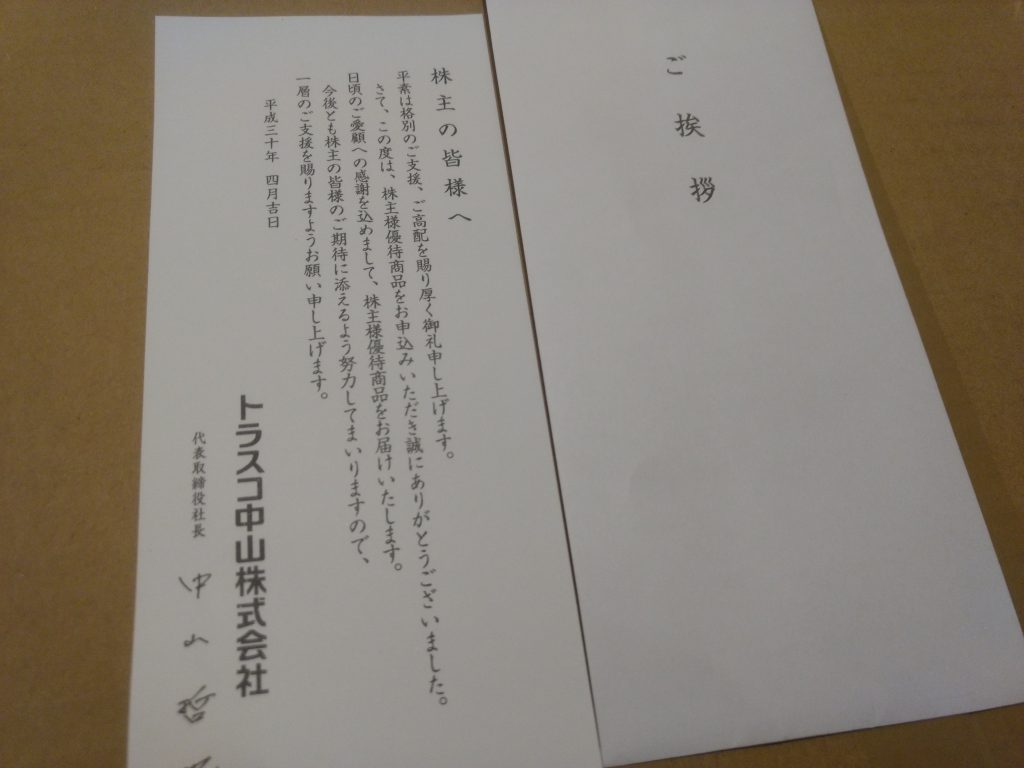 ご挨拶
株主の皆様へ
平素は格別のご支援、ご高配を賜り厚く御礼申し上げます。
さて、この度は、株主様優待商品をお申込みいただき誠にありがとうございました。
日頃のご愛顧への感謝を込めまして、株主様優待商品をお届けいたします。
今後とも株主の皆様のご期待に添えるよう努力してまいりますので、
一層のご支援を賜りますようお願い申し上げます。
平成三十年 四月吉日
トラスコ中山株式会社
代表取締役社長 中山哲